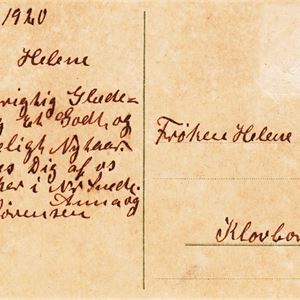 1920
Helene
rigtig Glæde-
g et Godt og
eligt Nytaar
es Dig af os
her i
Anna og
Sørensen
Frøken Helene
Klovbor